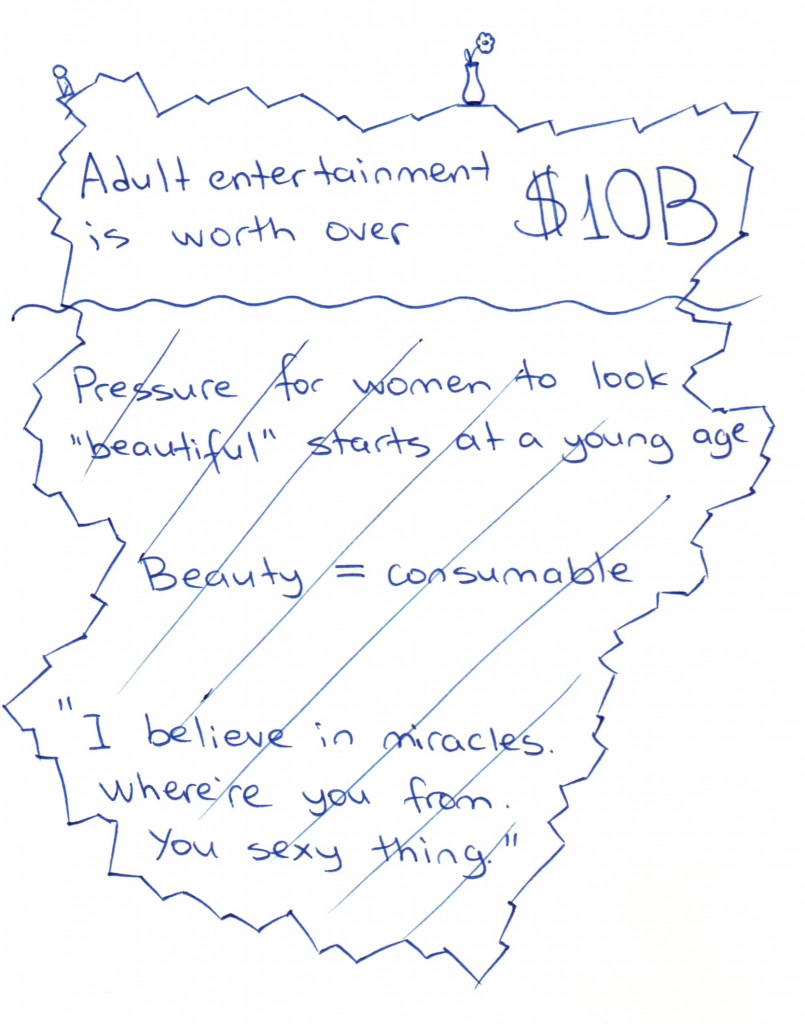 Adult entertainment
is worth over $10B
Pressure for women to look
"beautiful" starts at a young age
Beauty = consumable
"I believe in miracles.
where're you from.
You sexy thing."